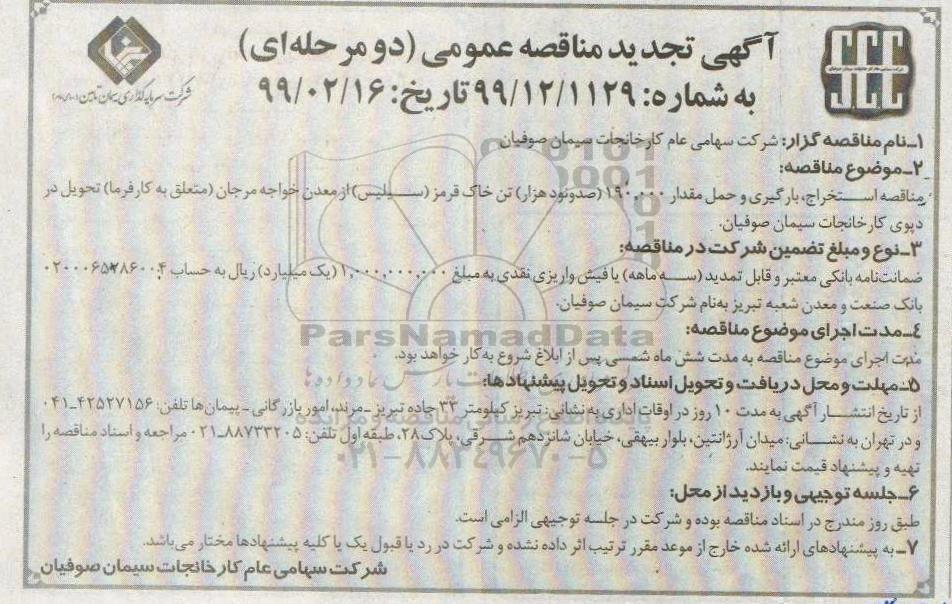 آگهی تجدید مناقصه عمومی (دو مرحله‌ای)
به شماره: ۹۹/۱۲/۱۱۲۹ تاریخ: ۹۹/۰۲/۱۶
شرکت سرمایه‌گذاری سیمان تامین
SCC
۱ـ نام مناقصه گزار: شرکت سهامی عام کارخانجات سیمان صوفیان
۲ـ موضوع مناقصه:
مناقصه استخراج، بارگیری و حمل مقدار ۱۹۰,۰۰۰ (صدونود هزار) تن خاک قرمز (سیلیس) از معدن خواجه مرجان (متعلق به کارفرما) تحویل در
دپوی کارخانجات سیمان صوفیان.
۳ـ نوع و مبلغ تضمین شرکت در مناقصه:
ضمانت‌نامه بانکی معتبر و قابل تمدید (سه ماهه) یا فیش واریزی نقدی به مبلغ ۱,۰۰۰,۰۰۰,۰۰۰ (یک میلیارد) ریال به حساب
بانک صنعت و معدن شعبه تبریز به‌نام شرکت سیمان صوفیان.
ParsNamadData
۴ـ مدت اجرای موضوع مناقصه:
مدت اجرای موضوع مناقصه به مدت شش ماه شمسی پس از ابلاغ شروع به کار خواهد بود.
۵ـ مهلت و محل دریافت و تحویل اسناد و تحویل پیشنهادها:
از تاریخ انتشار آگهی به مدت ۱۰ روز در اوقات اداری به نشانی: تبریز کیلومتر ۳۳ جاده تبریز ـ مرند، امور بازرگانی ـ پیمان‌ها تلفن: ۴۲۵۲۷۱۵۶ـ۰۴۱
و در تهران به نشانی: میدان آرژانتین، بلوار بیهقی، خیابان شانزدهم شرقی، پلاک ۲۸، طبقه اول تلفن: ۸۸۷۳۳۲۰۵ـ۰۲۱ مراجعه و اسناد مناقصه را
تهیه و پیشنهاد قیمت نمایند.
۰۲۱-۸۸۳۴۹۶۷۰-۵
۶ـ جلسه توجیهی و بازدید از محل:
طبق روز مندرج در اسناد مناقصه بوده و شرکت در جلسه توجیهی الزامی است.
۷ـ به پیشنهادهای ارائه شده خارج از موعد مقرر ترتیب اثر داده نشده و شرکت در رد یا قبول یک یا کلیه پیشنهادها مختار می‌باشد.
شرکت سهامی عام کارخانجات سیمان صوفیان